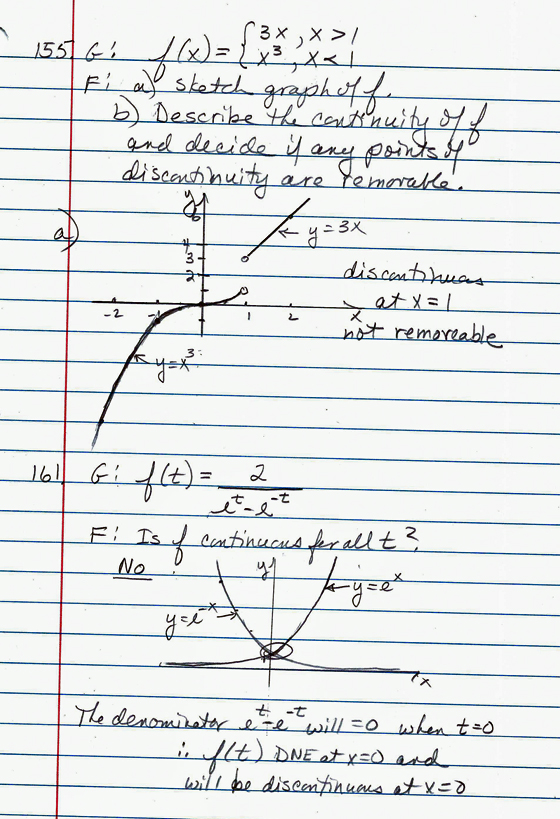 155 G: f(x) = { 3x, x > 1
x³, x < 1
F: a) sketch graph of f.
b) Describe the continuity of f
and decide if any points of
discontinuity are removable.
a)
y
6
4
3
2
y = 3x
discontinuous
at x = 1
not removeable
-2 -1 1 2 x
y = x³
161 G: f(t) = 2
e^t - e^-t
F: Is f continuous for all t?
No
y
y = e^x
y = e^-x
x
The denominator e^t - e^-t will = 0 when t = 0
∴ f(t) DNE at x = 0 and
will be discontinuous at x = 0